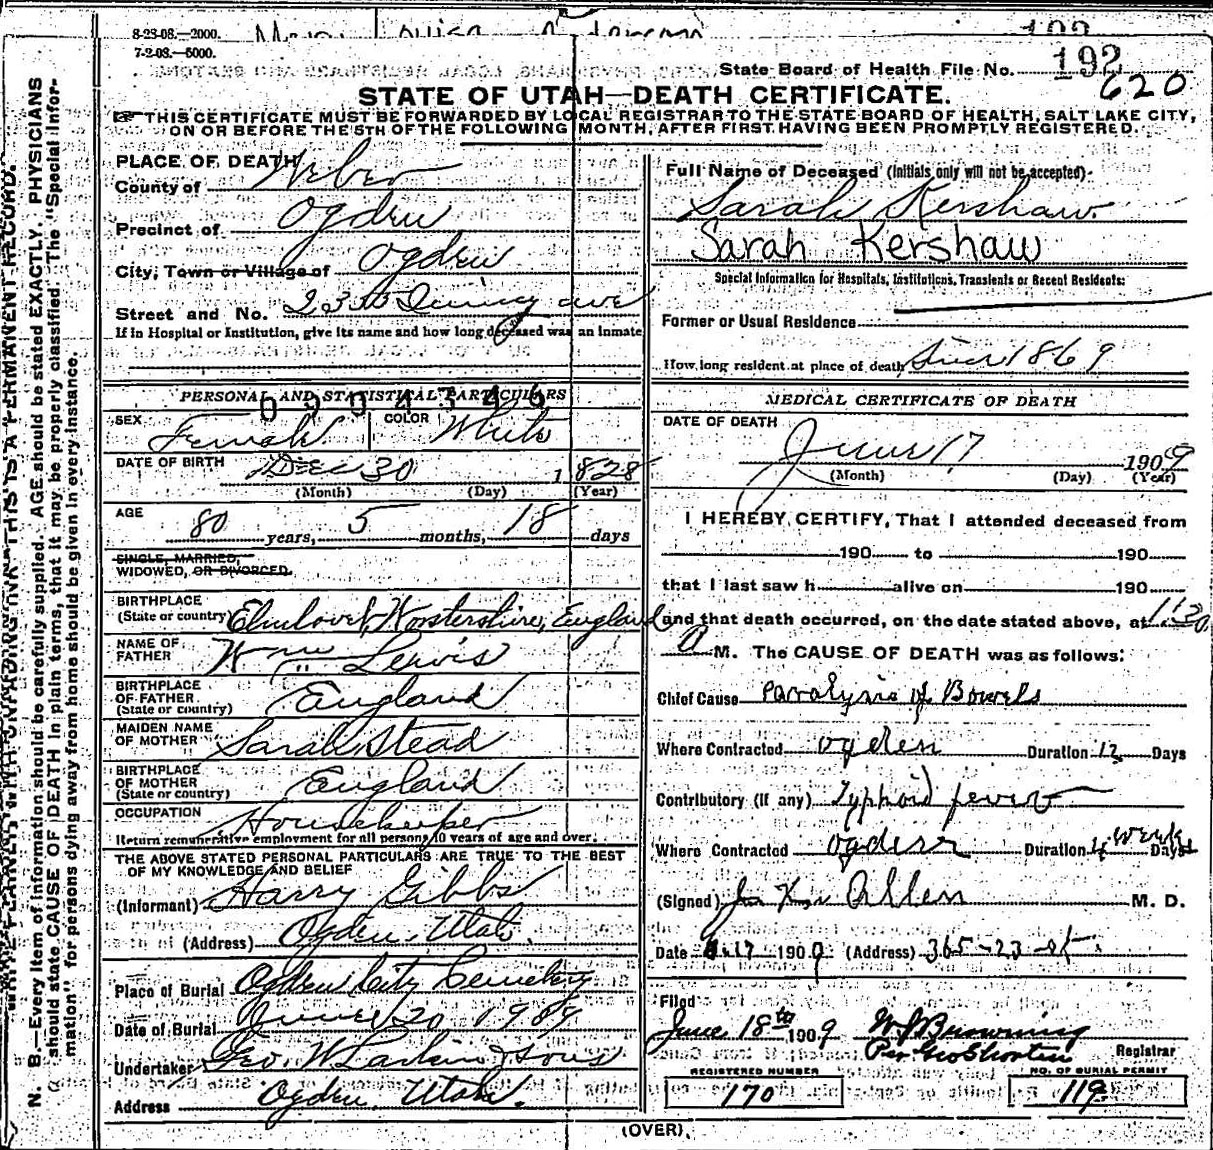 8-23-08.—2000.
7-2-08.—5000.
192
State Board of Health File No. 192
620
STATE OF UTAH—DEATH CERTIFICATE.
THIS CERTIFICATE MUST BE FORWARDED BY LOCAL REGISTRAR TO THE STATE BOARD OF HEALTH, SALT LAKE CITY,
ON OR BEFORE THE 5TH OF THE FOLLOWING MONTH, AFTER FIRST HAVING BEEN PROMPTLY REGISTERED.
PLACE OF DEATH
County of Weber
Precinct of Ogden
City, Town or Village of Ogden
Street and No. ave
If in Hospital or Institution, give its name and how long deceased was an inmate
PERSONAL AND STATISTICAL PARTICULARS
0904346
SEX Female COLOR White
DATE OF BIRTH Dec 30 1828
(Month) (Day) (Year)
AGE
80 years, 5 months, 18 days
SINGLE, MARRIED,
WIDOWED, OR DIVORCED.
BIRTHPLACE
(State or country) England
NAME OF
FATHER Wm Lewis
BIRTHPLACE
OF FATHER England
(State or country)
MAIDEN NAME
OF MOTHER Sarah Stead
BIRTHPLACE
OF MOTHER England
(State or country)
OCCUPATION Housekeeper
Return remunerative employment for all persons 10 years of age and over.
THE ABOVE STATED PERSONAL PARTICULARS ARE TRUE TO THE BEST
OF MY KNOWLEDGE AND BELIEF
(Informant) Harry Gibbs
(Address) Ogden, Utah.
Place of Burial Ogden City Cemetery
Date of Burial June 20 1909
Undertaker Geo. W Larkin & Sons
Address Ogden, Utah.
Full Name of Deceased (Initials only will not be accepted)
Sarah Kershaw.
Sarah Kershaw
Special Information for Hospitals, Institutions, Transients or Recent Residents:
Former or Usual Residence
How long resident at place of death Since 1869
MEDICAL CERTIFICATE OF DEATH
DATE OF DEATH
June 17 1909
(Month) (Day) (Year)
I HEREBY CERTIFY, That I attended deceased from
190 to 190
that I last saw h alive on 190
and that death occurred, on the date stated above, at 1:30
M. The CAUSE OF DEATH was as follows:
Chief Cause Paralysis of Bowels
Where Contracted Ogden Duration 12 Days
Contributory (If any) Typhoid fever
Where Contracted Ogden Duration 4 weeks Days
(Signed) Allen M. D.
Date 6.17 1909 (Address) 365-23 st.
Filed
June 18th 1909 W J Browning
Per Geo Shorten Registrar
REGISTERED NUMBER
170
NO. OF BURIAL PERMIT
119
(OVER)
WRITE PLAINLY WITH UNFADING INK—THIS IS A PERMANENT RECORD.
N. B.—Every item of information should be carefully supplied. AGE should be stated EXACTLY. PHYSICIANS
should state CAUSE OF DEATH in plain terms, that it may be properly classified. The "Special Infor-
mation" for persons dying away from home should be given in every instance.